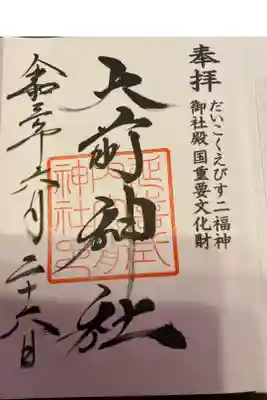 奉拝
だいこくえびす二福神
御社殿国重要文化財
大前神社
延喜式
内大前
神社印
令和三年六月二十六日